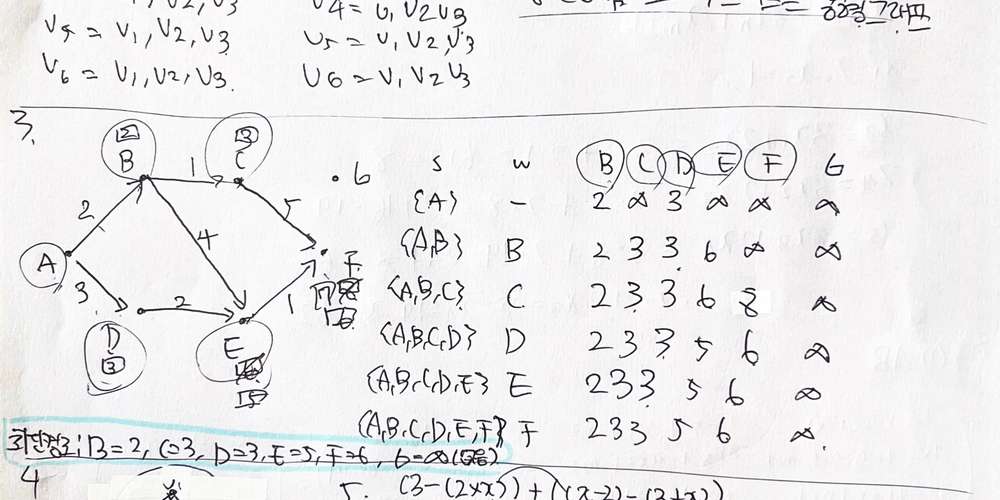 V5 = V1, V2, V3
V6 = V1, V2, V3
V4 = V1 V2 V3
V5 = V1 V2 V3
V6 = V1 V2 V3
3.
2
B
3
C
1
2
4
5
A
3
2
1
D
3
E
5
F
6
S W B C D E F G
{A} - 2 ∞ 3 ∞ ∞ ∞
{A,B} B 2 3 3 6 ∞ ∞
{A,B,C} C 2 3 3 6 8 ∞
{A,B,C,D} D 2 3 3 5 6 ∞
{A,B,C,D,E} E 2 3 3 5 6 ∞
{A,B,C,D,E,F} F 2 3 3 5 6 ∞
B=2, C=3, D=3, E=5, F=6, G=∞
4
5. (3-(2+x)) + ((x-2)-(3+x))